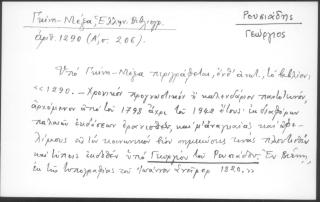 Γκίνη-Μέξα, Ελλην. Βιβλιογρ.
ἀριθ. 1290 (Α', σ. 206).
Ρουσιάδης
Γεώργιος
Ὑπὸ Γκίνη-Μέξα περιγράφεται, τὸ βιβλίον,
«1290.- Χρονικὸν προγνωστικὸν ἢ καλενδάριον παντοτεινόν,
ἀρχόμενον ἀπὸ τοῦ 1798 ἄχρι τοῦ 1948 ἔτους· ἐκ διαφόρων
παλαιῶν ἐκδόσεων ἐρανισθέν, καὶ μ' ἀναγκαίας καὶ ὠφε-
λίμους διὰ τὸν κοινωνικὸν βίον σημειώσεις πλουτισθὲν
καὶ τύποις ἐκδοθὲν ὑπὸ Γεωργίου τοῦ Ρουσιάδου. Ἐν Βιέννῃ,
ἐκ τῆς τυπογραφίας τοῦ Ἰωάννου Σνείρερ 1820.»